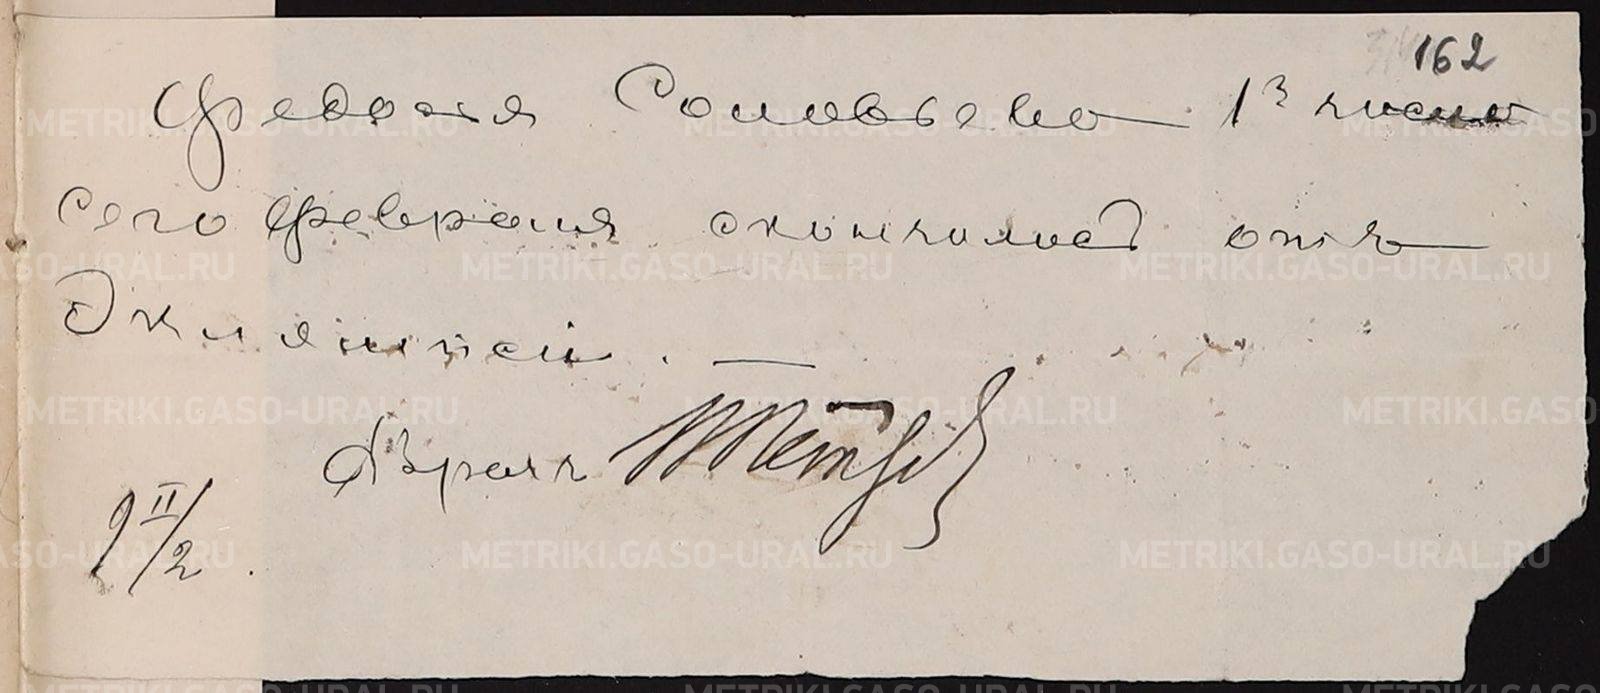 162
Федосья Соловьева 13 числа
сего февраля скончалась отъ
Эклямпсіи. —
Врачъ
II/2
METRIKI.GASO-URAL.RU